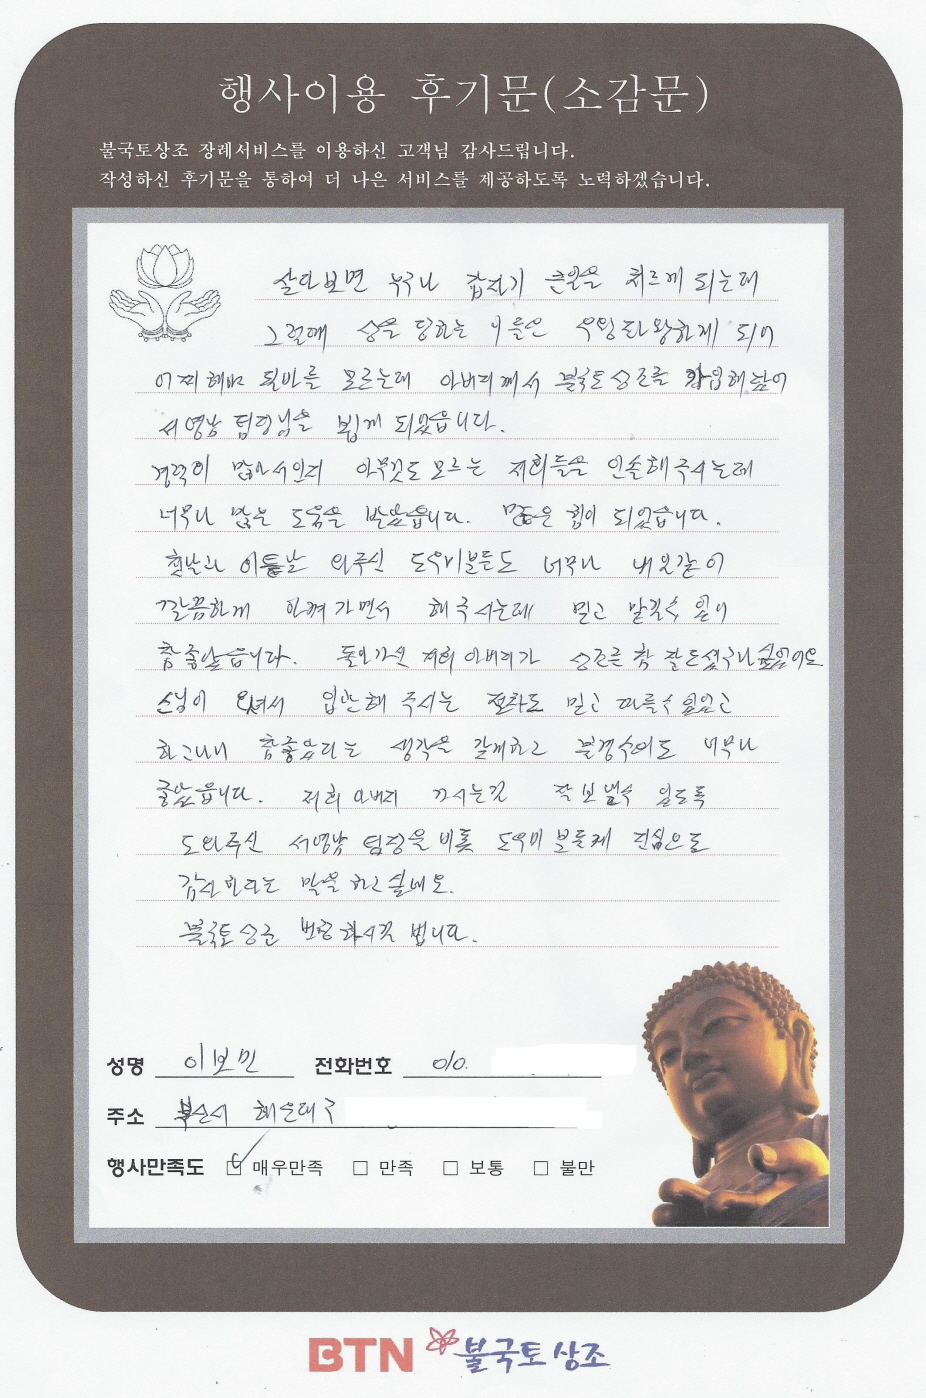 행사이용 후기문(소감문)
불국토상조 장례서비스를 이용하신 고객님 감사드립니다.
작성하신 후기문을 통하여 더 나은 서비스를 제공하도록 노력하겠습니다.
살다보면 누구나 갑자기 큰일을 치르게 되는데
그럴때 상을 당하는 이들은 우왕좌왕하게 되어
어찌해야 될바를 모르는데 아버지께서 불국토상조를 가입해놓아
서영남 팀장님을 뵙게 되었습니다.
경력이 많아서인지 아무것도 모르는 저희들을 인솔해주시는데
너무나 많은 도움을 받았습니다. 많은 힘이 되었습니다.
첫날과 이튿날 와주신 도우미분들도 너무나 내일같이
깔끔하게 아껴가면서 해주시는데 믿고 맡길수 있어
참좋았습니다. 돌아가신 저희 아버지가 상조를 참 잘드셨구나 싶었어요
스님이 오셔서 입관해 주시는 절차도 믿고 따를수 있었고
하고나니 참좋았다는 생각을 갖게하고 불경수여도 너무나
좋았습니다. 저희 아버지 가시는길 잘 보낼수 있도록
도와주신 서영남 팀장을 비롯 도우미 분들께 진심으로
감사하다는 말을 하고 싶네요.
불국토상조 번창하시길 빕니다.
성명 이보민 전화번호 010.
주소 부산시 해운대구
행사만족도 ☑ 매우만족 □ 만족 □ 보통 □ 불만
BTN 불국토상조